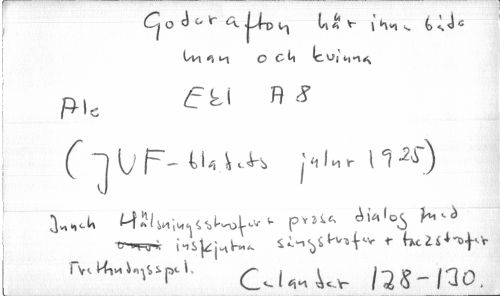 Goder afton här inne både
man och kvinna
Ale EEI A 8
(JUF-bladets julnr 1925)
Inneh Hälsningsstrofer + prosa dialog med
inskjutna sångstrofer + tackstrofer
Trettondagsspel. Celander 128-130.